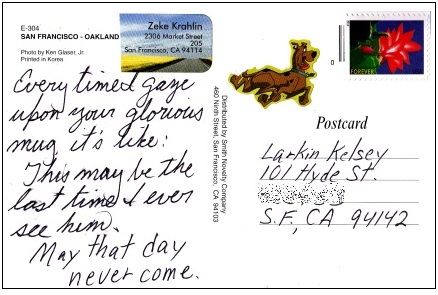 E-304
SAN FRANCISCO - OAKLAND
Photo by Ken Glaser, Jr.
Printed in Korea
Zeke Krahlin
2306 Market Street
205
San Francisco, CA 94114
Every time I gaze
upon your glorious
mug, it's like:
This may be the
last time I ever
see him.
May that day
never come.
Distributed by Smith Novelty Company
460 Ninth Street, San Francisco, CA 94103
FOREVER
Postcard
Larkin Kelsey
101 Hyde St.
S.F., CA 94142